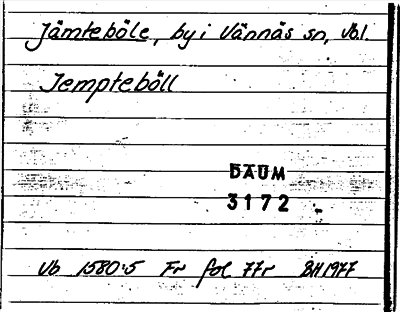 Jämteböle, by i Vännäs sn, Vb.l.
Jempteböll
DAUM
3172
Vb 1580:5 Fr fol 77r BH 1977